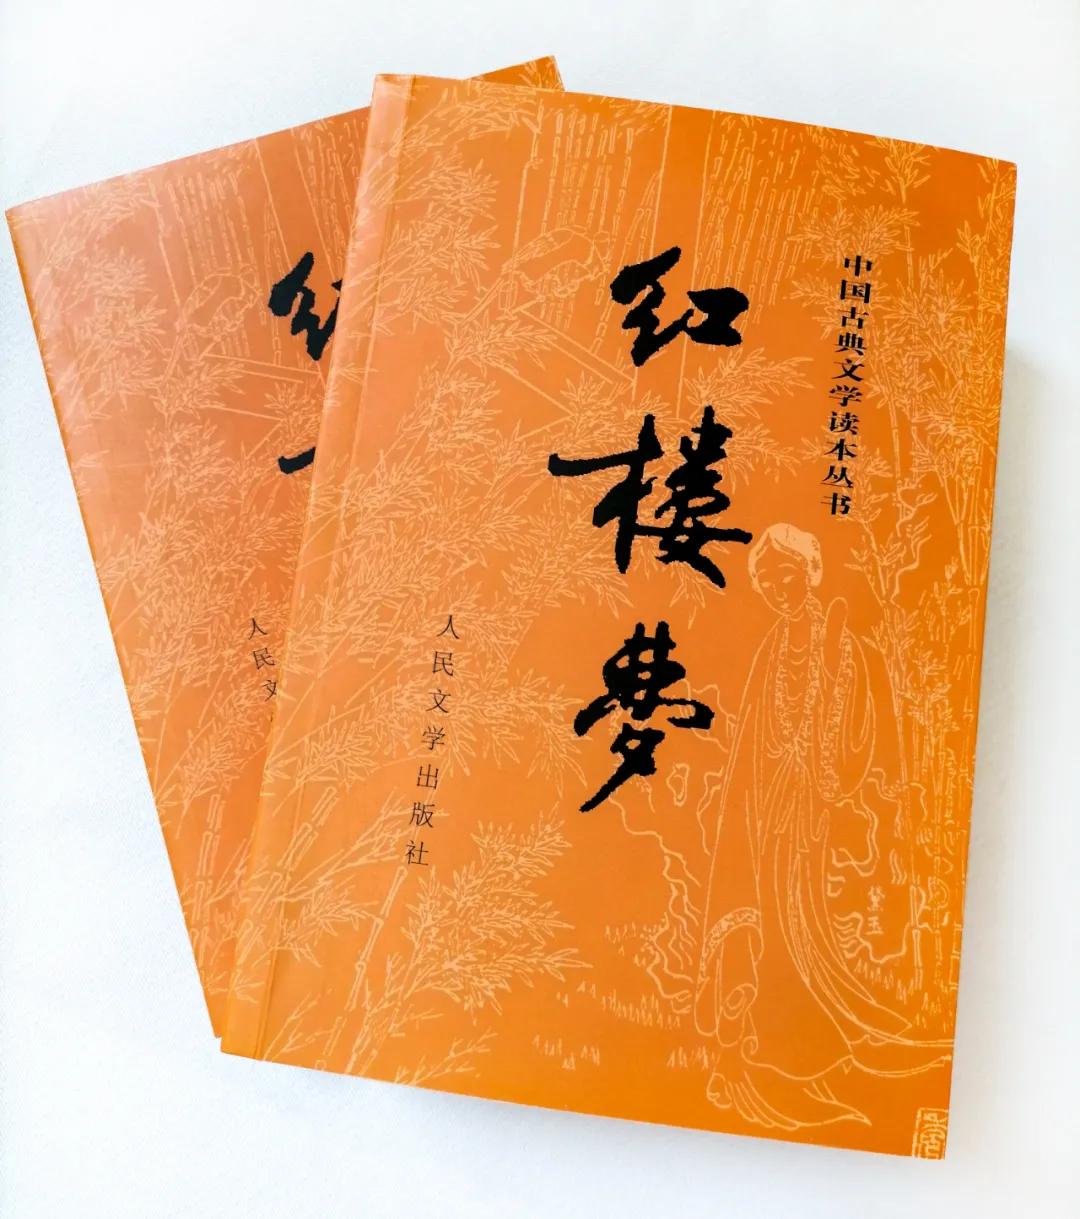 中国古典文学读本丛书
红楼梦
人民文学出版社
黛玉
红
人民文